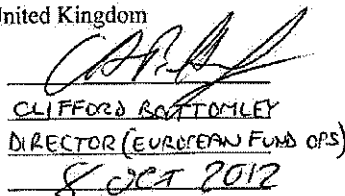 United Kingdom
CLIFFORD BOTTOMLEY
DIRECTOR (EUROPEAN FUND OPS)
8 OCT 2012